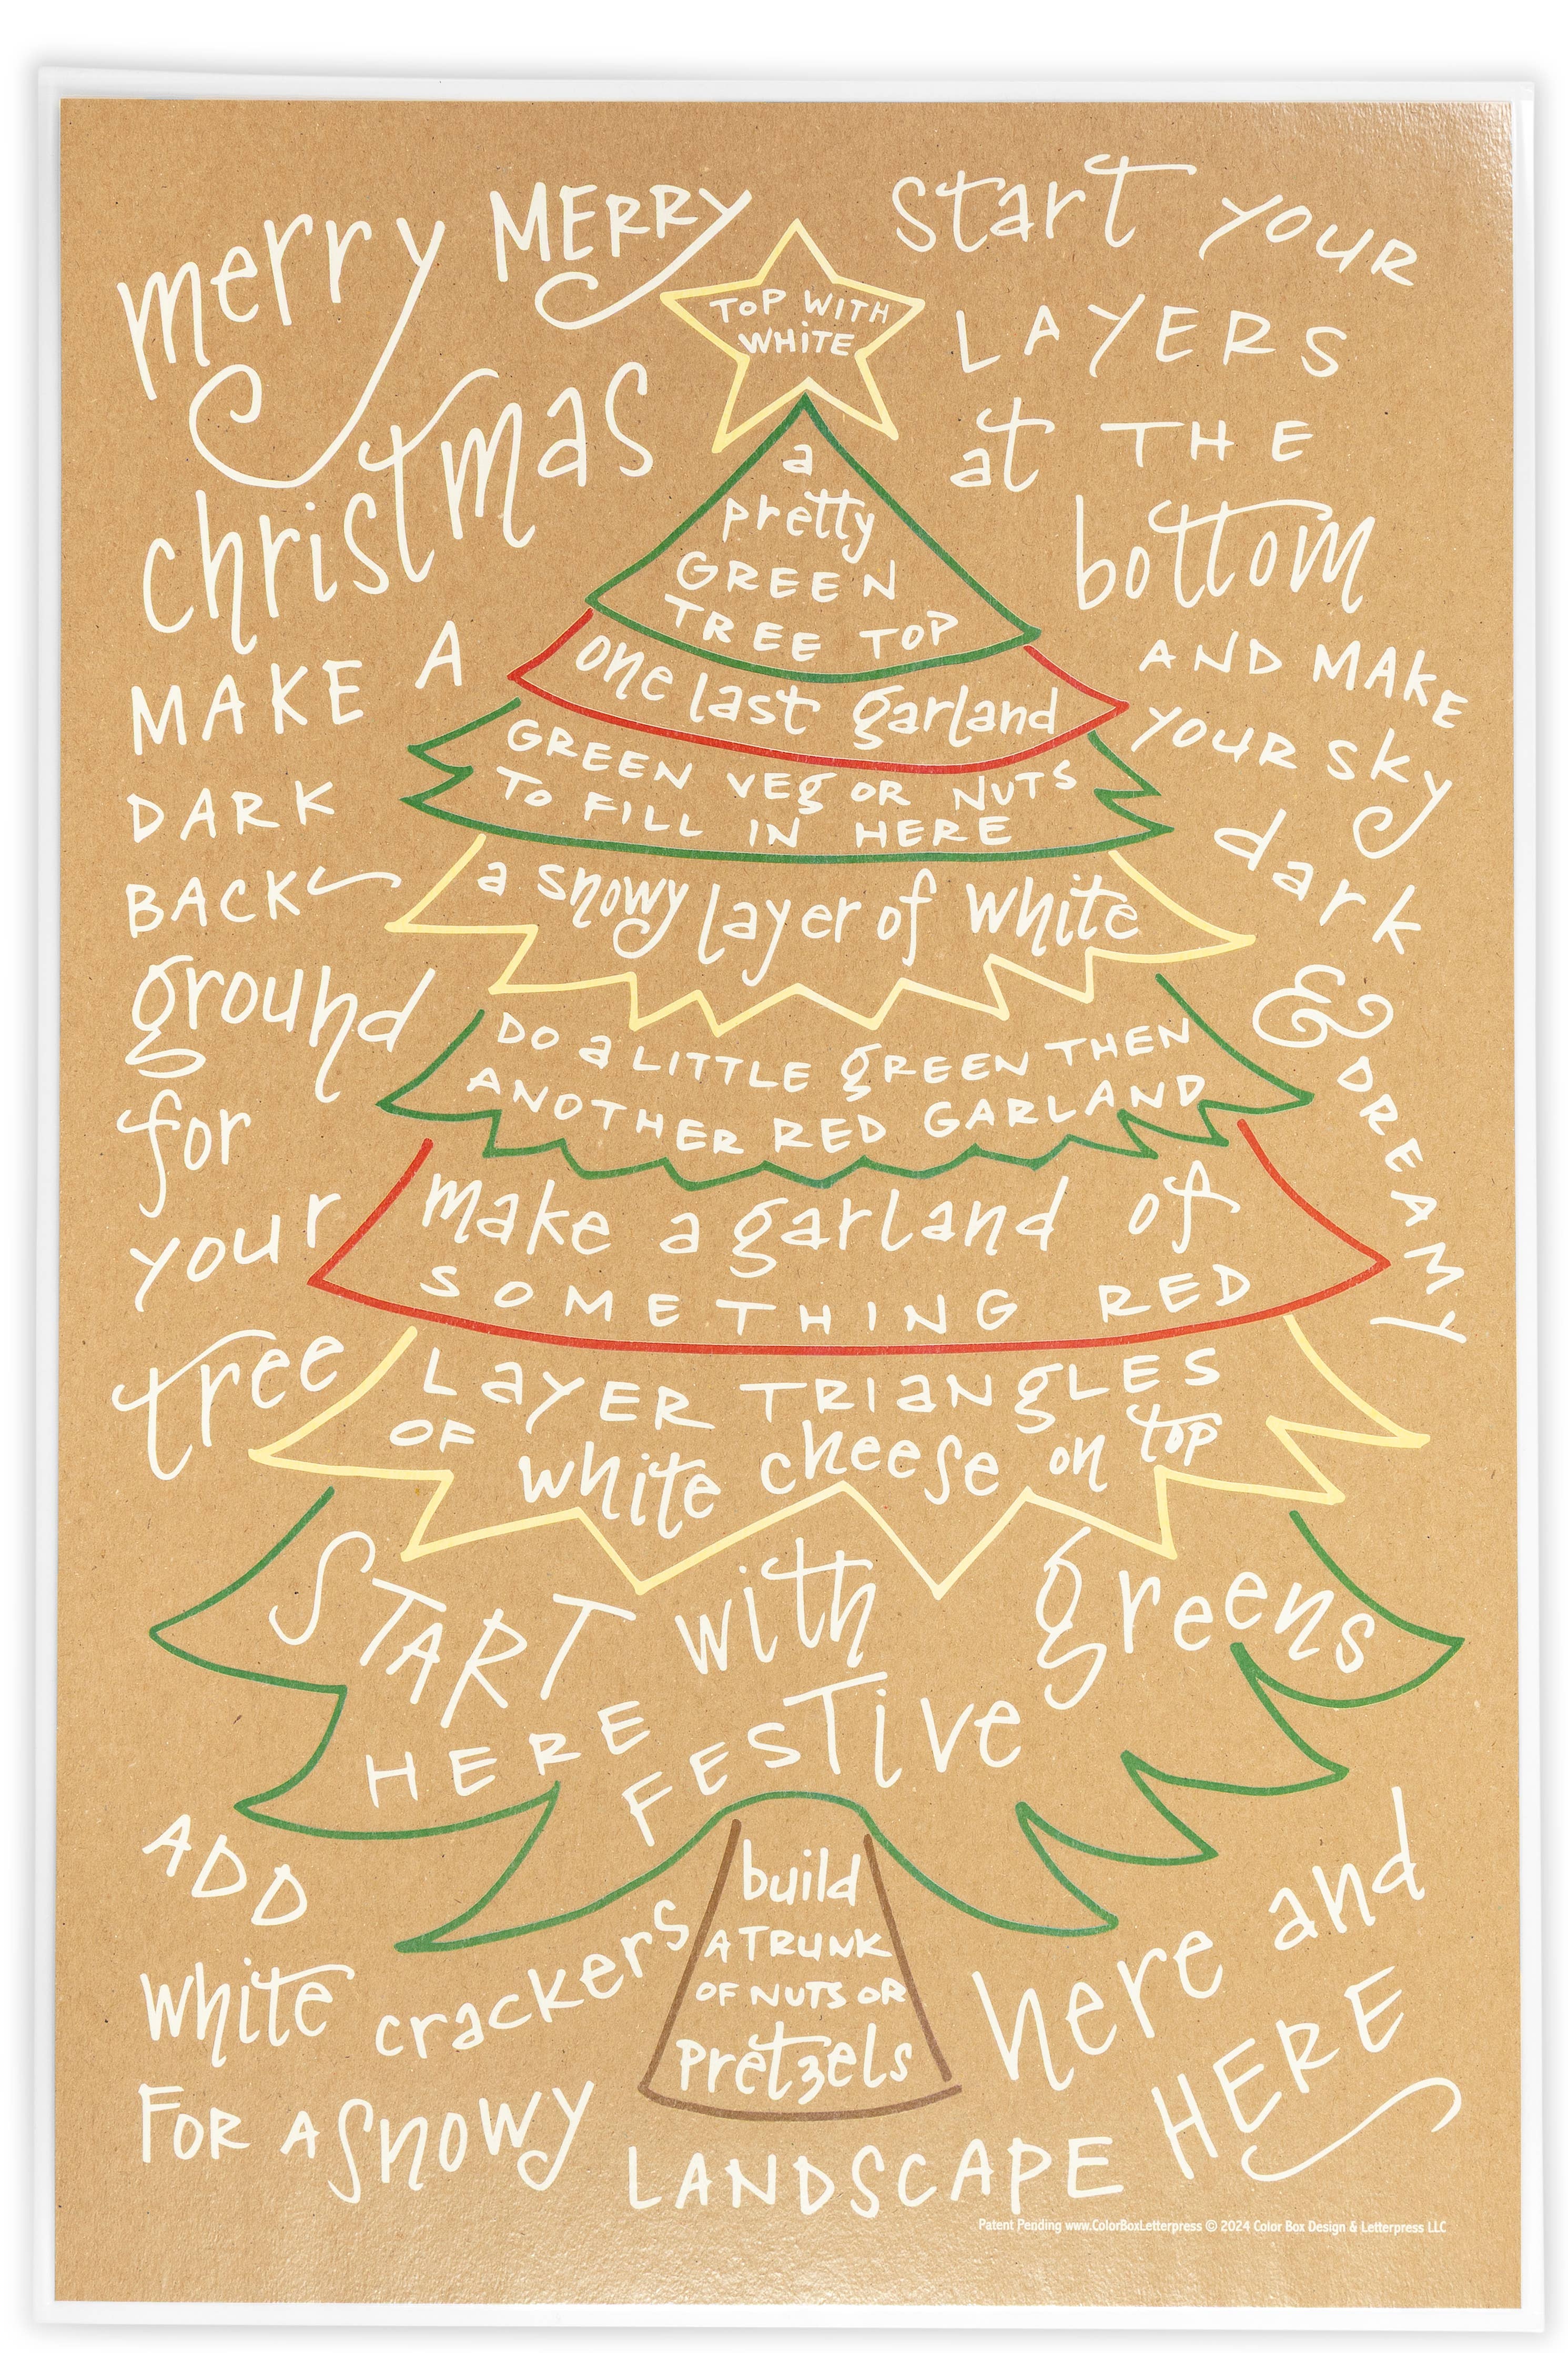 merry MERRY
christmas
MAKE A
DARK
BACK
ground
for
your
tree
start YOUR
LAYERS
at THE
bottom
AND MAKE
YOUR sky
dark
&
DREAMY
TOP WITH
WHITE
a
pretty
GREEN
TREE TOP
one last garland
GREEN VEg OR NUTS
TO FILL IN HERE
a snowy layer of white
DO a LITTLE gREEN THEN
ANOTHER RED GARLAND
make a garland of
SOMETHING RED
LaYER TRIaNgLES
OF white cheese on top
START with greens
HERE FESTive
build
A TRUNK
OF NUTS OR
pretzels
ADD
white crackers
FOR A snowy
LANDSCAPE
here and
HERE
Patent Pending www.ColorBoxLetterpress © 2024 Color Box Design & Letterpress LLC